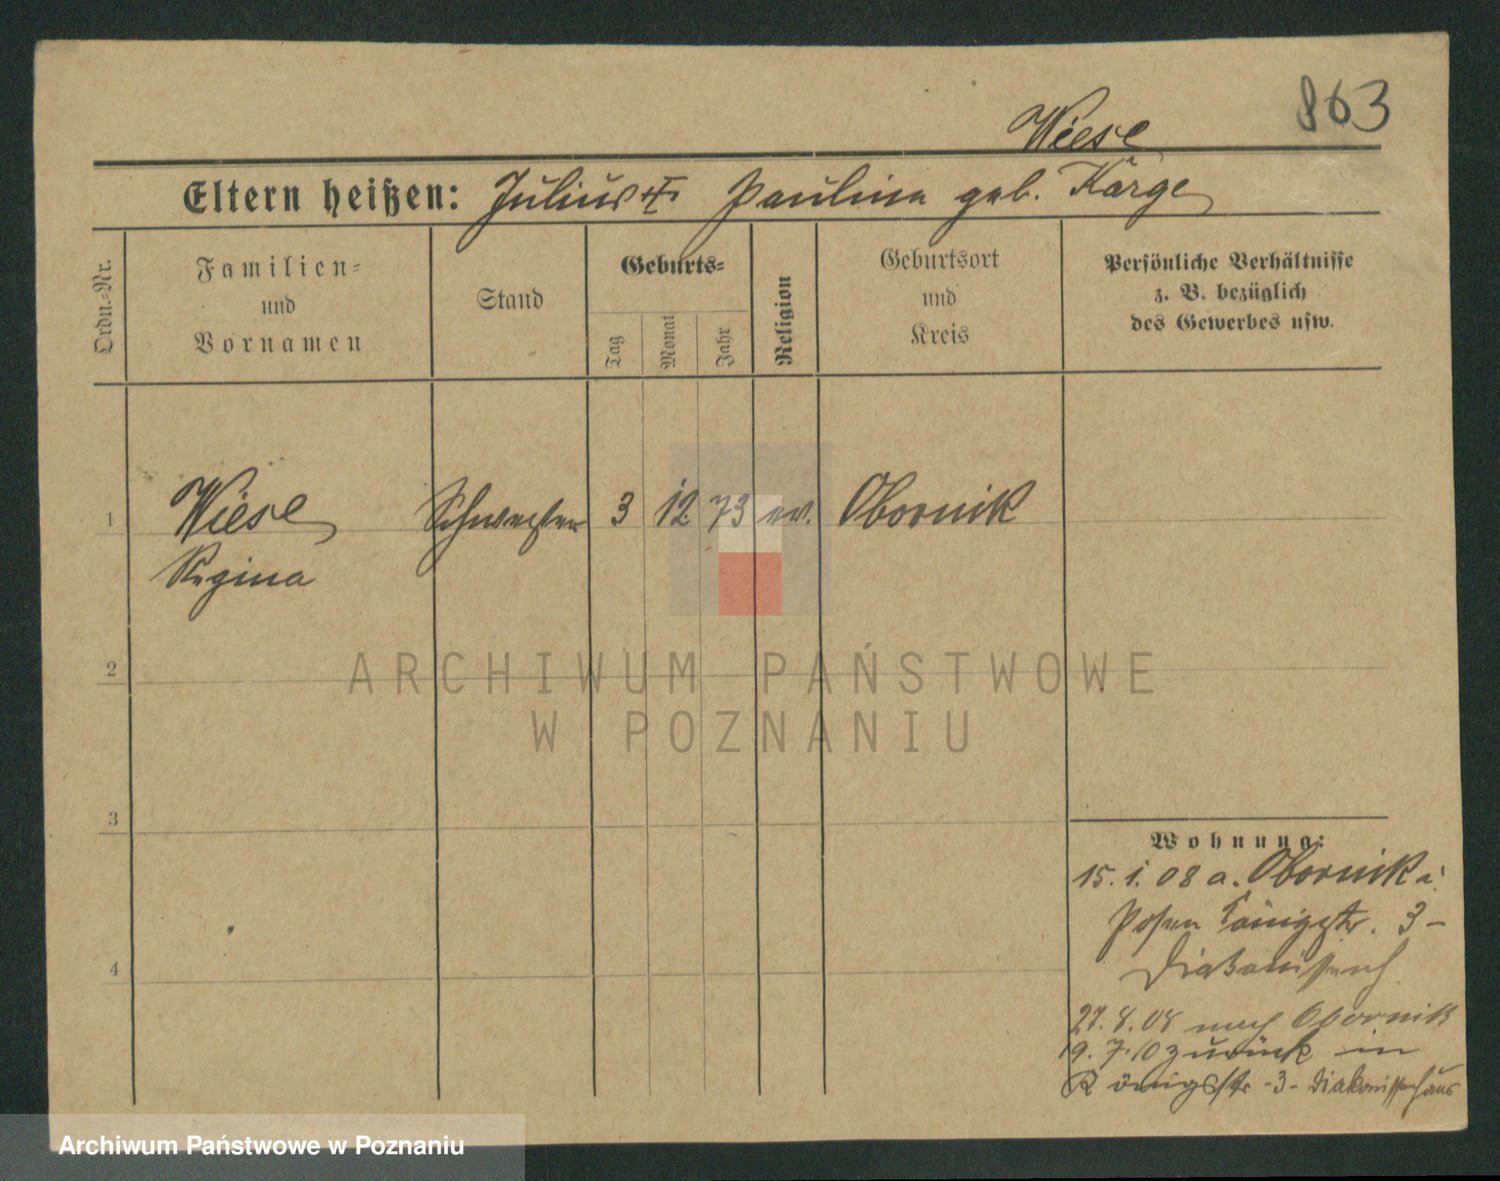 863
Wiese
Eltern heißen: Julius † Paulina geb. Karge
Ordn.-Nr.
Familien-
und
Vornamen
Stand
Geburts-
Tag
Monat
Jahr
Religion
Geburtsort
und
Kreis
Persönliche Verhältnisse
z. B. bezüglich
des Gewerbes usw.
1 Wiese Schwester 3 12 73 ev. Obornik
Regina
2
3
4
Wohnung:
15. 1. 08 a. Obornik i.
Posen Königstr. 3 –
Diakonissenh
27. 8. 08 nach Obornik
19. 7. 10 zurück in
Königstr. -3- Diakonissenhaus
ARCHIWUM PAŃSTWOWE
W POZNANIU
Archiwum Państwowe w Poznaniu